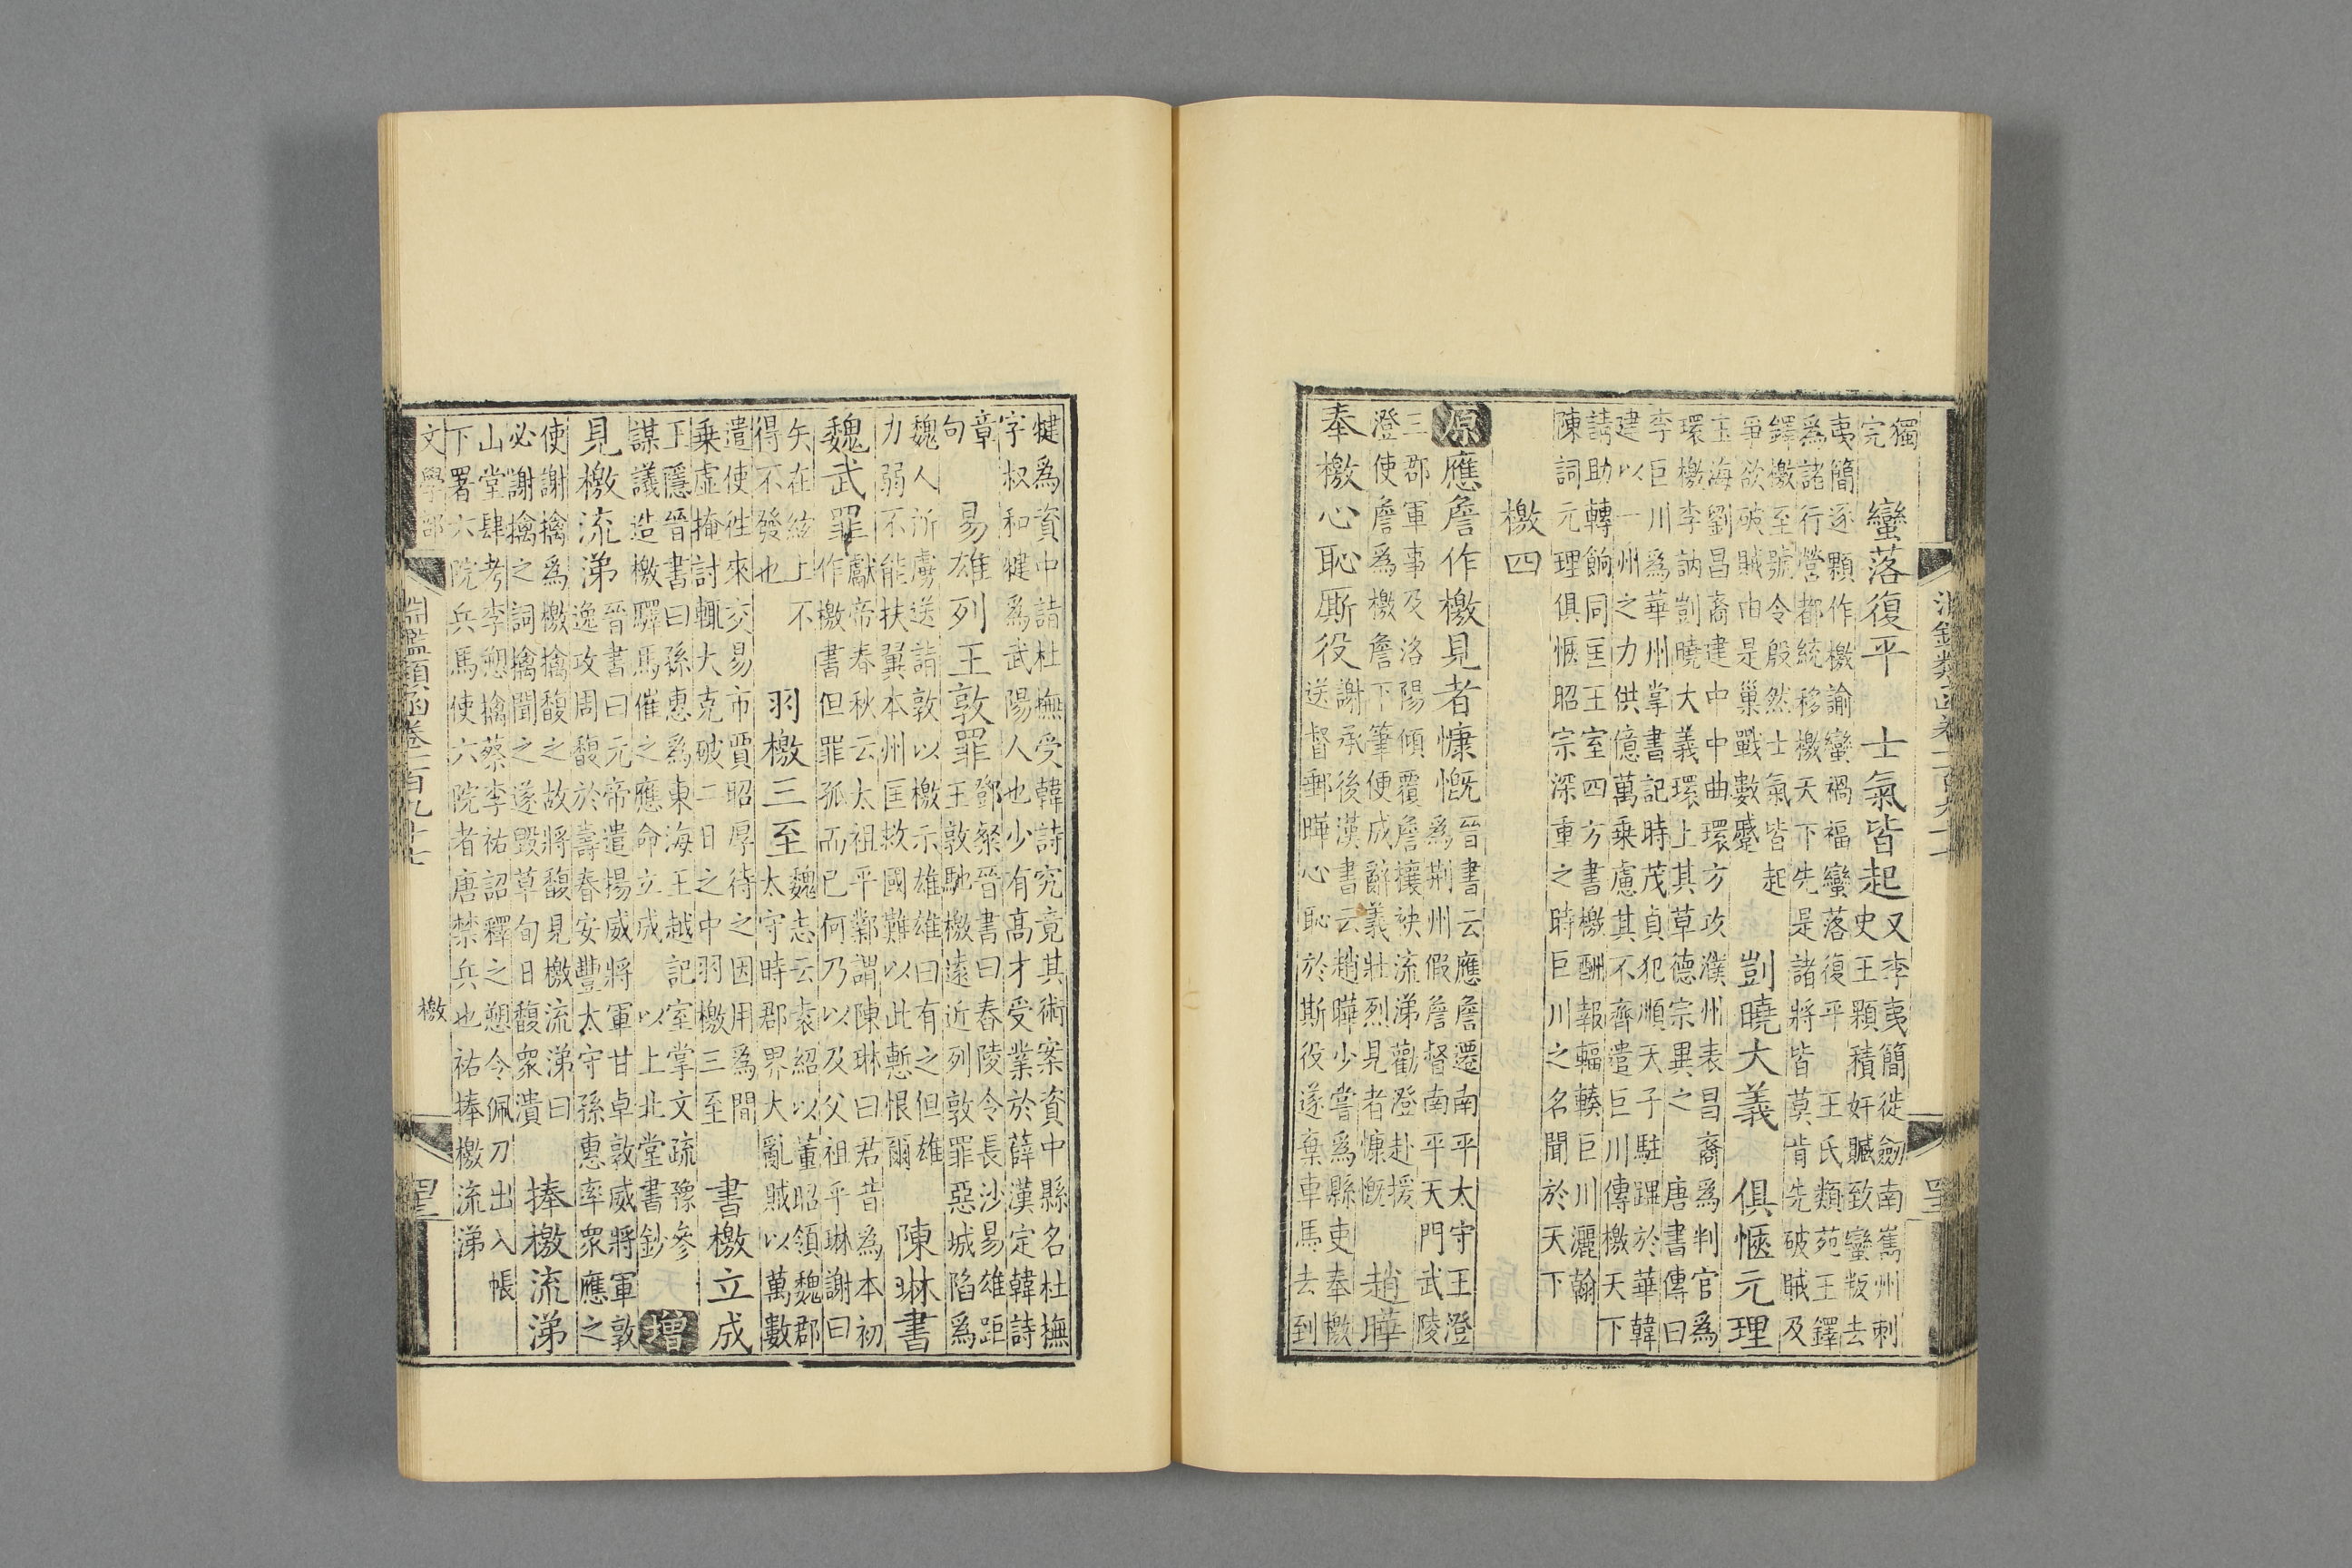 獨
完
蠻落復平　士氣皆起
又李夷簡徙劒南嶲州刺
史王顒積奸贓致蠻叛去
夷簡逐顒作檄諭蠻禍福蠻落復平　王氏類苑王鐸
爲諸行營都統移檄天下先是諸將皆莫肯先破賊及
鐸檄至號令殷然士氣皆起
爭欲破賊由是巢戰數蹙
剴曉大義　俱愜元理
玉海劉昌裔建中中曲環方攻濮州表昌裔爲判官爲
環檄李訥剴曉大義環上其草德宗異之　唐書傳曰
李巨川爲華州掌書記時茂貞犯順天子駐蹕於華韓
建以一州之力供億萬乗慮其不齊遣巨川傳檄天下
請助轉餉同匡王室四方書檄酬報輻輳巨川灑翰
陳詞元理俱愜昭宗深重之時巨川之名聞於天下
檄四
原應詹作檄見者慷慨
晉書云應詹遷南平太守王澄
爲荆州假詹督南平天門武陵
三郡軍事及洛陽傾覆詹攘袂流涕勸澄赴援
澄使詹爲檄詹下筆便成辭義壯烈見者慷慨
趙曄
奉檄心恥厮役
謝承後漢書云趙曄少嘗爲縣吏奉檄
送督郵曄心恥於斯役遂棄車馬去到
犍爲資中詣杜撫受韓詩究竟其術案資中縣名杜撫
字叔和犍爲武陽人也少有高才受業於薛漢定韓詩
章
句
易雄列王敦罪
鄧粲晉書曰舂陵令長沙易雄距
王敦馳檄遠近列敦罪惡城陷爲
魏人所虜送詣敦以檄示雄雄曰有之但雄
力弱不能扶翼本州匡救國難以此慙恨爾
陳琳書
魏武罪
獻帝春秋云太祖平鄴謂陳琳曰君昔爲本初
作檄書但罪孤而已何乃以及父祖乎琳謝曰
矢在絃上不
得不發也
羽檄三至
魏志云袁紹以董昭領魏郡
太守時郡界大亂賊以萬數
遣使徃來交易市賈昭厚待之因用爲間
乗虛掩討輒大克破二日之中羽檄三至
書檄立成
王隱晉書曰孫惠爲東海王越記室掌文疏豫參
謀議造檄驛馬催之應命立成　以上北堂書鈔
增
見檄流涕
晉書曰元帝遣揚威將軍甘卓敦威將軍敦
逸攻周馥於壽春安豐太守孫惠率衆應之
使謝摛爲檄摛馥之故將馥見檄流涕曰
必謝摛之詞摛聞之遂毀草旬日馥衆潰
捧檄流涕
山堂肆考李愬擒蔡李祐詔釋之愬令佩刀出入帳
下署六院兵馬使六院者唐禁兵也祐捧檄流涕
文學部　淵鑑類函卷一百九十七　檄